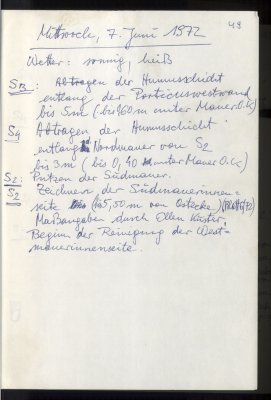 49
Mittwoch, 7. Juni 1972
Wetter: sonnig, heiß
S13: Abtragen der Humusschicht
entlang der Porticuswestwand
bis 5m (bis 0,60 m unter Mauer O.K.)
S4 Abtragen der Humusschicht
entlang Nordmauer von S2
bis 3m (bis 0,40 m unter Mauer O.K.)
S2: Putzen der Südmauer.
S2 Zeichnen der Südmauerinnen=
seite (bis 5,50 m von Ostecke)
Maßangaben durch Ellen Küster.
Beginn der Reinigung der West=
mauerinnenseite.